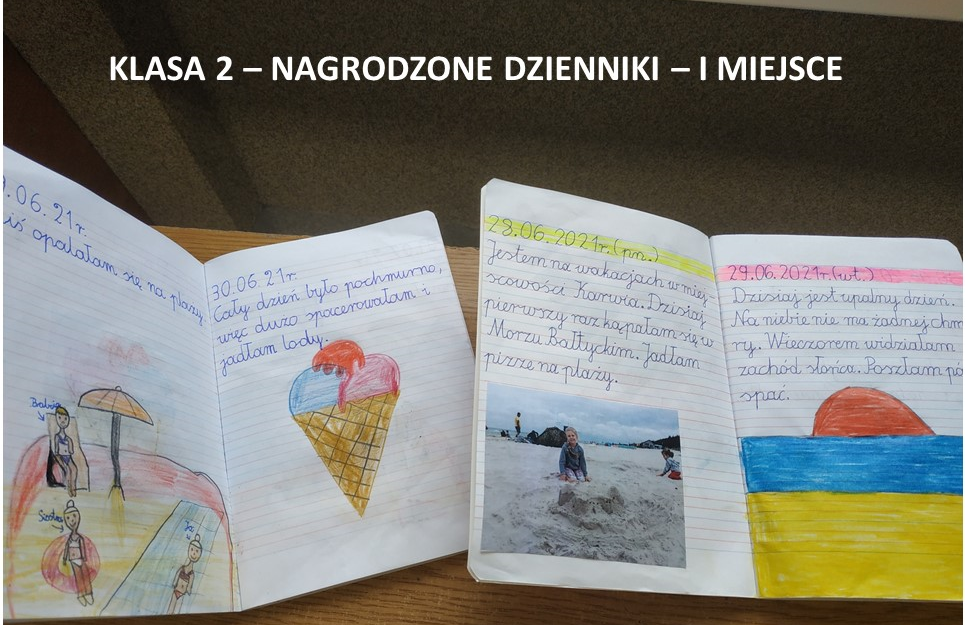 KLASA 2 – NAGRODZONE DZIENNIKI – I MIEJSCE
.06.21r.
iś opalałam się na plaży.
Babcia
Siostra
Ja
30.06.21r.
Cały dzień było pochmurno,
więc dużo spacerowałam i
jadłam lody.
28.06.2021r.(pn.)
Jestem na wakacjach w miej-
scowości Karwia. Dzisiaj
pierwszy raz kąpałam się w
Morzu Bałtyckim. Jadłam
pizzę na plaży.
29.06.2021r.(wt.)
Dzisiaj jest upalny dzień.
Na niebie nie ma żadnej chm
ry. Wieczorem widziałam
zachód słońca. Poszłam pó
spać.